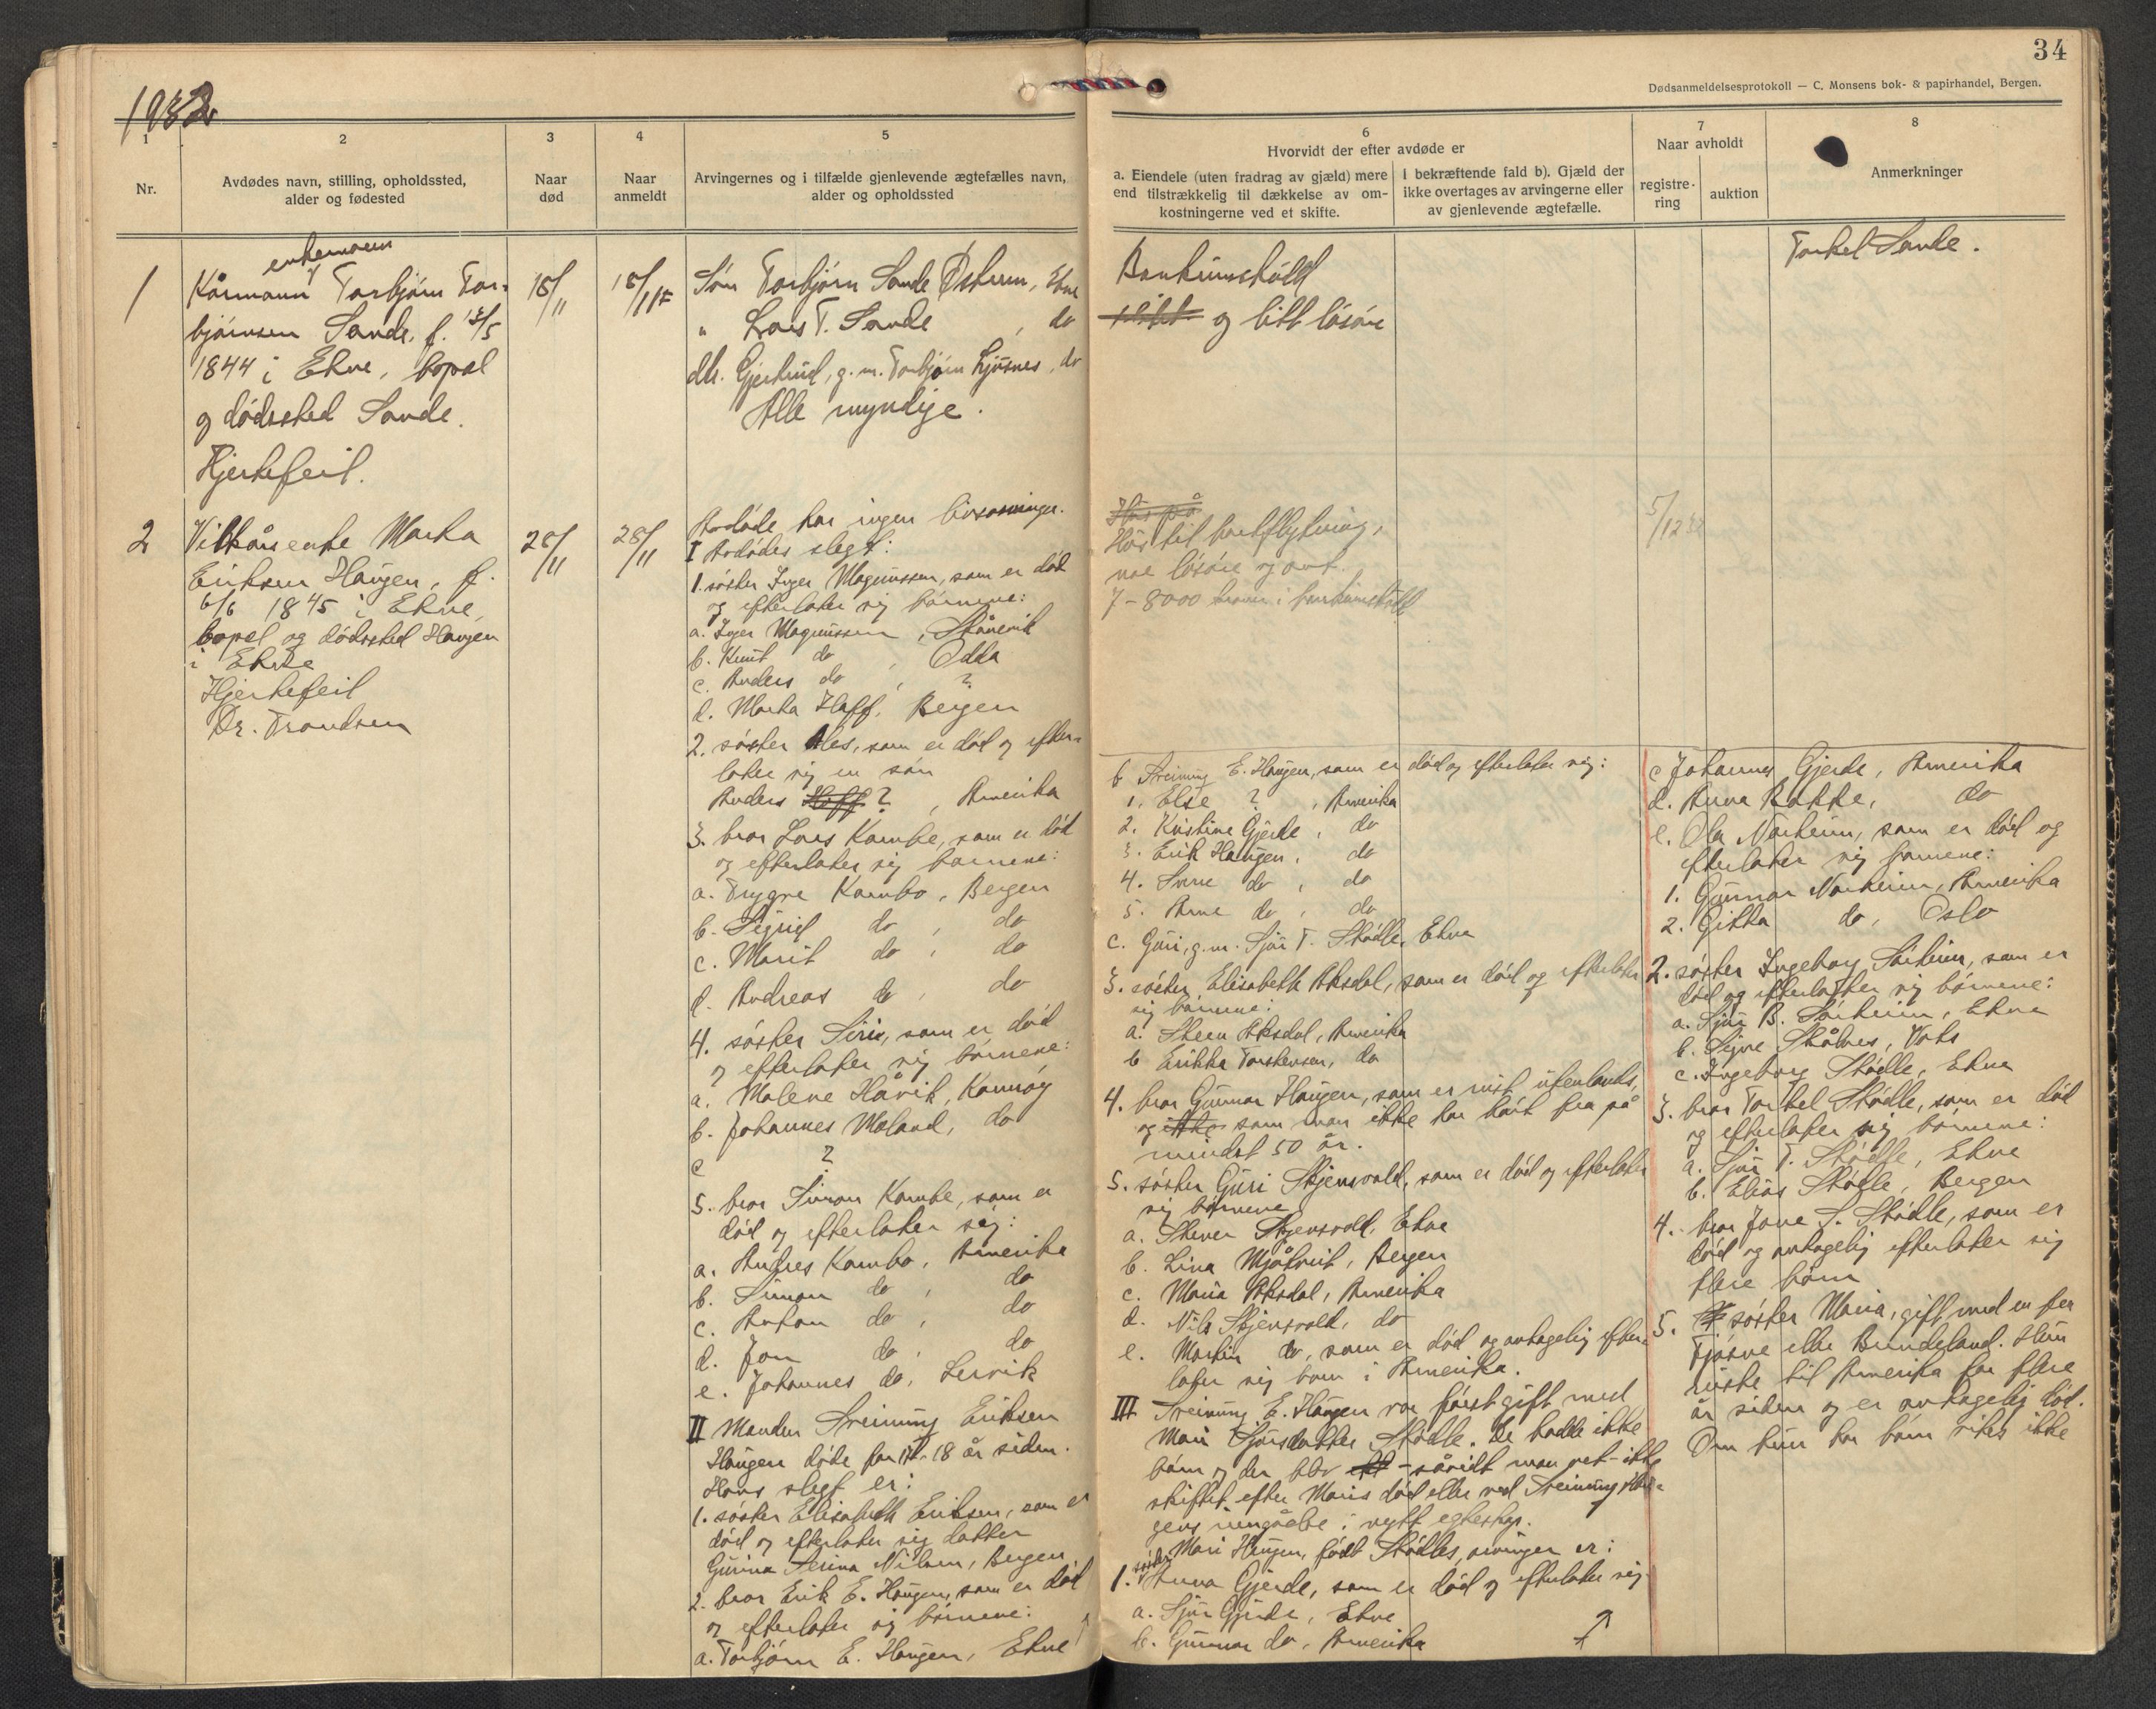 1932
34
Dødsanmeldelsesprotokoll — C. Monsens bok- & papirhandel, Bergen.
1
Nr.
2
Avdødes navn, stilling, opholdssted,
alder og fødested
3
Naar
død
4
Naar
anmeldt
5
Arvingernes og i tilfælde gjenlevende ægtefælles navn,
alder og opholdssted
6
Hvorvidt der efter avdøde er
a. Eiendele (uten fradrag av gjæld) mere
end tilstrækkelig til dækkelse av om-
kostningerne ved et skifte.
I bekræftende fald b). Gjæld der
ikke overtages av arvingerne eller
av gjenlevende ægtefælle.
7
Naar avholdt
registre-
ring
auktion
8
Anmerkninger
1
enkemann
Kårmann Torbjørn Tor-
bjørnsen Sande, f. /5
1844 i Etne, bopel
og dødssted Sande.
Hjertefeil.
18/11
18/11
Søn Torbjørn Sande Østrem, Etne
" Lars T. Sande, do
dtr. Gjertrud, g. m. Torbjørn Ljusnes, do
Alle myndige.
Bankinnskudd
og litt løsøre
Torkel Sande.
2
Vilkårsenke Marta
Eriksen Haugen, f.
6/6 1845 i Etne,
bopel og dødssted Haugen
i Etne
Hjertefeil
Dr. Frandsen
28/11
28/11
Avdøde har ingen livsarvinger.
I Avdødes slegt:
1. søster Inger Magnussen, som er død
og efterlater sig børnene:
a. Inger Magnussen, Skånevik
b. Knut do, Odda
c. Anders do, ?
d. Marta Haff, Bergen
2. søster Ales, som er død og efter-
later sig en søn
Anders Hoff ?, Amerika
3. bror Lars Kambe, som er død
og efterlater sig børnene:
a. Trygve Kambo, Bergen
b. Sigrid do, do
c. Marit do, do
d. Andreas do, do
4. søster Siri, som er død
og efterlater sig børnene:
a. Malene Håvik, Karmøy
b. Johannes Moland, do
c ?
5. bror Simon Kambe, som er
død og efterlater sig:
a. Anders Kambo, Amerika
b. Simon do, do
c. Anton do, do
d. Jon do, do
e. Johannes do, Lervik
II Manden Sreinung Eriksen
Haugen døde for 17-18 år siden.
Hans slegt er:
1. søster Elisabeth Eriksen, som er
død og efterlater sig datter
Gurina Serina Nilsen, Bergen
2. bror Erik E. Haugen, som er død
og efterlater sig børnene:
a. Torbjørn E. Haugen, Etne
Hus på
Hus til bortflytning,
noe løsøre og
7-8000 kroner i bankinnskudd
5/12 32
b Sreinung E. Haugen, som er død og efterlater sig:
1. Else ?, Amerika
2. Kristine Gjerde, do
3. Erik Haugen, do
4. Sverre do, do
5. Arne do, do
c. Guri, g. m. Sjur T. Stødle, Etne
3. søster Elisabeth Aksdal, som er død og efterlater
sig børnene:
a. Steen Aksdal, Amerika
b Erikka Torstensen, do
4. bror Gunnar Haugen, som er reist utenlands,
og ikke som man ikke har hørt fra på
mindst 50 år.
5. søster Guri Skjensvold, som er død og efterlater
sig børnene
a. Stener Skjensvold, Etne
b. Lina Mjåtveit, Bergen
c. Maria Aksdal, Amerika
d. Nils Skjensvold, do
e. Martin do, som er død og antagelig efter-
later sig barn i Amerika.
III Sreinung E. Haugen var først gift med
Mari Sjursdatter Stødle. De hadde ikke
børn og der blev -såvidt man vet- ikke
skiftet efter Maris død eller ved Sreinung Hau-
gens inngåelse i nytt egteskap.
Mari Haugen, født Stødles arvinger er:
1. søster Anna Gjerde, som er død og efterlater sig
a. Sjur Gjerde, Etne
b. Gunnar do, Amerika
c Johannes Gjerde, Amerika
d. Anna Bakke, do
e. Ola Nørheim, som er død og
efterlater sig børnene:
1. Gunnar Nørheim, Amerika
2. Gitta do, Oslo
2. søster Ingeborg Sørheim, som er
død og efterlater sig børnene:
a. Sjur B. Sørheim, Etne
b. Signe Skålnes, Vats
c. Ingeborg Stødle, Etne
3. bror Torkel Stødle, som er død
og efterlater sig børnene:
a. Sjur T. Stødle, Etne
b. Elias Stødle, Bergen
4. bror Jone S. Stødle, som er
død og antagelig efterlater sig
flere børn
5. søster Maria, gift med en fra
Tjøsve eller Bundeland. Hun
reiste til Amerika for flere
år siden og er antagelig død.
Om hun har børn vites ikke